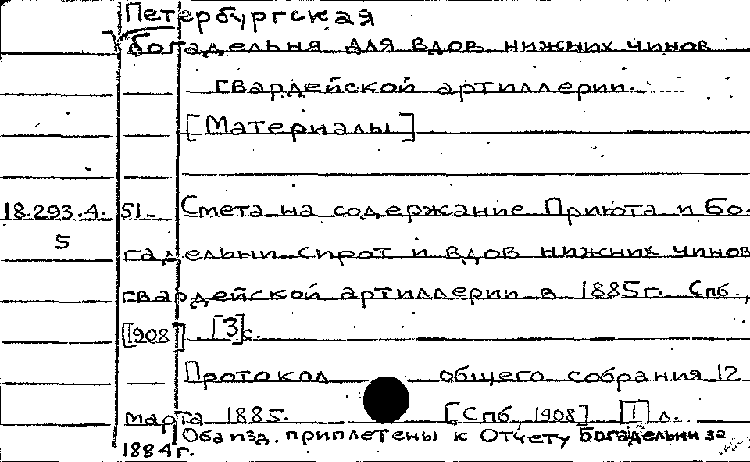 Петербургская
богадельня для вдов нижних чинов
гвардейской артиллерии.
[Материалы]
18.293.4. 51. Смета на содержание Приюта и Бо-
5 гадельни сирот и вдов нижних чинов
гвардейской артиллерии в 1885г. Спб.,
[1908] [3]с.
Протокол общего собрания 12
марта 1885. [Спб, 1908] [1] л.
Оба изд. приплетены к Отчету Богадельни за
1884г.